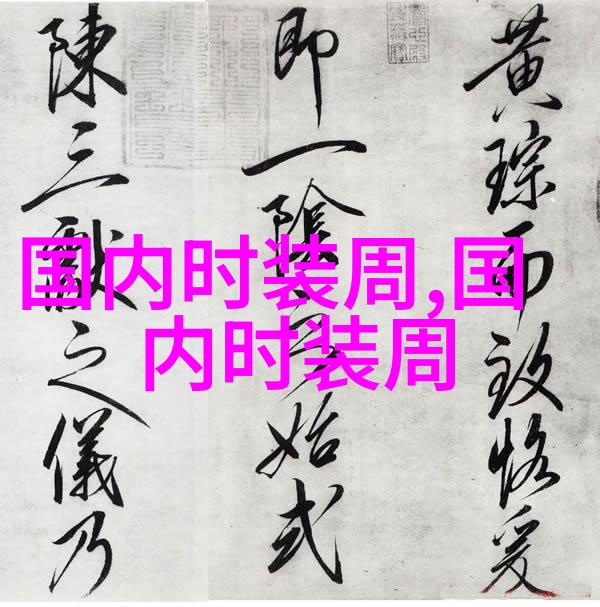 黄琮而致恪爰
即一陰始式
陳三獻之儀乃
国内时装周,国
内时装周